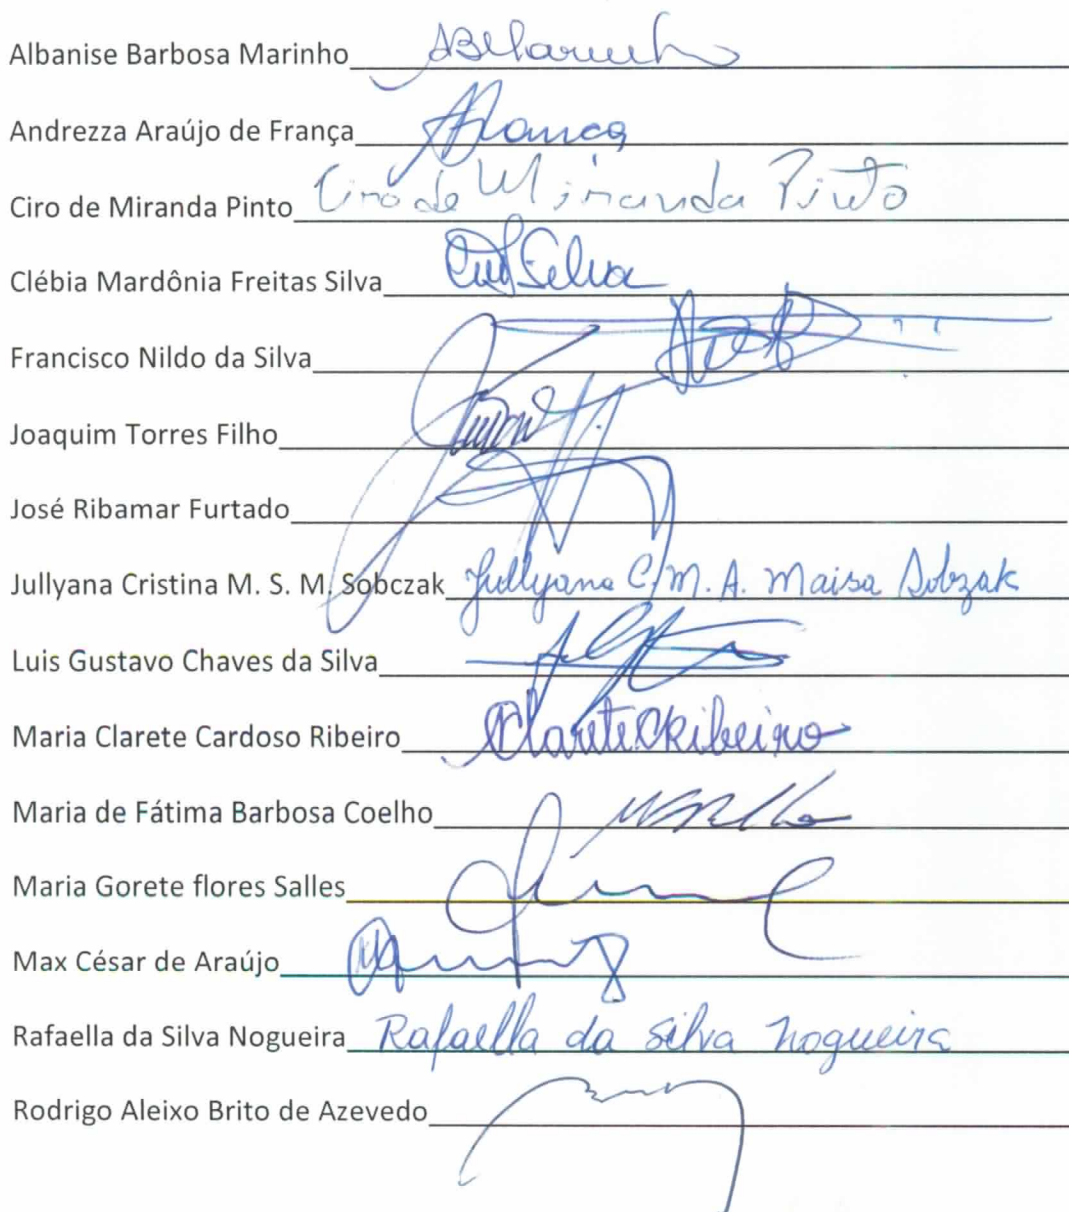 Albanise Barbosa Marinho ABMarinho
Andrezza Araújo de França AFrança
Ciro de Miranda Pinto Ciro de Miranda Pinto
Clébia Mardônia Freitas Silva Silva
Francisco Nildo da Silva
Joaquim Torres Filho
José Ribamar Furtado
Jullyana Cristina M. S. M. Sobczak Jullyana C. M. A. Maisa Sobzak
Luis Gustavo Chaves da Silva
Maria Clarete Cardoso Ribeiro MClareteCRibeiro
Maria de Fátima Barbosa Coelho
Maria Gorete flores Salles
Max César de Araújo
Rafaella da Silva Nogueira Rafaella da Silva Nogueira
Rodrigo Aleixo Brito de Azevedo